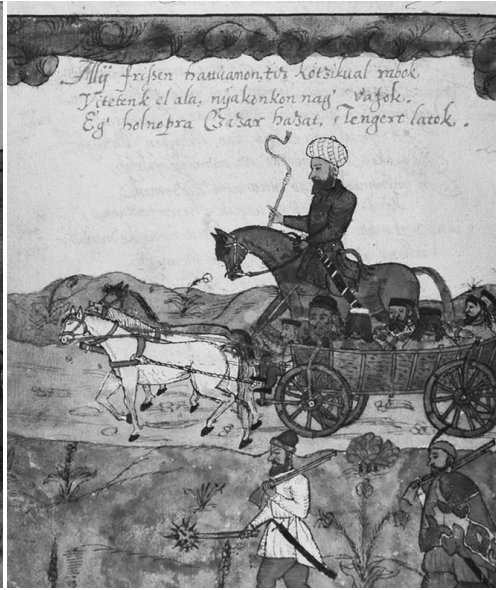 Allij frissen hatuanon, tiz kotzikual rabok,
Vitetenk el ala, nyakonkon nag' vasok.
Eg' holnopra Czaszar haszat, s Tengert latok.